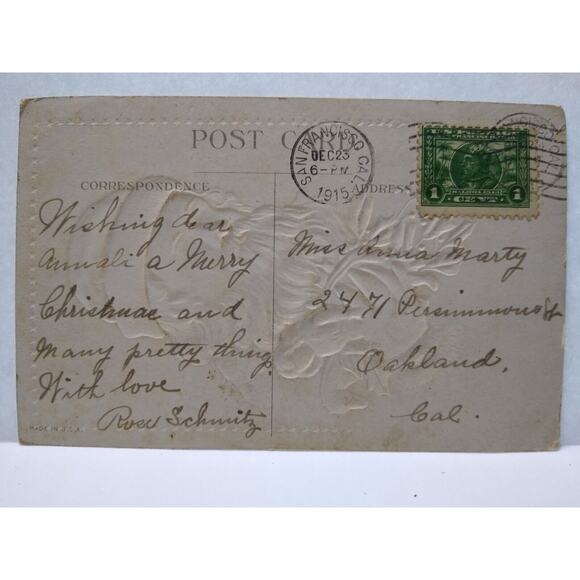 POST CARD
SAN FRANCISCO, CAL.
DEC 23
6-PM
1915
1 1
CENT
CORRESPONDENCE
ADDRESS
Wishing dear
Annali a Merry
Christmas and
Many pretty things
With love
Rose Schmitz
Miss Anna Marty
2471 Persimmons St
Oakland,
Cal.
MADE IN U.S.A.